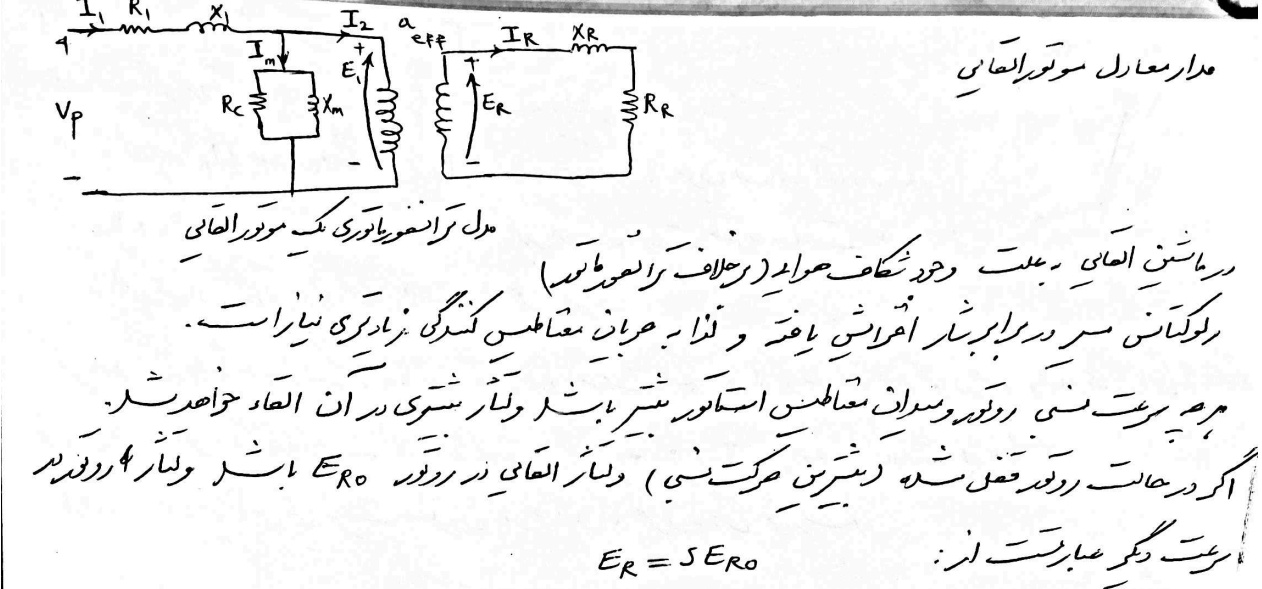 I₁ R₁ X₁ I₂ a_eff I_R X_R
+ I_m + E₁ + E_R
V_p R_c X_m R_R
- - -
مدار معادل موتور القایی
مدل ترانسفورماتوری یک موتور القایی
در ماشین القایی به علت وجود شکاف هوایی (برخلاف ترانسفورماتور)
رلوکتانس مسیر در برابر شار افزایش یافته و لذا به جریان مغناطیس کنندگی زیادتری نیاز است.
هر چه سرعت نسبی روتور و میدان مغناطیسی استاتور بیشتر باشد ولتاژ بیشتری در آن القاء خواهد شد.
اگر در حالت روتور قفل شده (بیشترین حرکت نسبی) ولتاژ القایی در روتور E_R0 باشد ولتاژ روتور در
سرعت دیگر عبارتست از: E_R = S E_R0